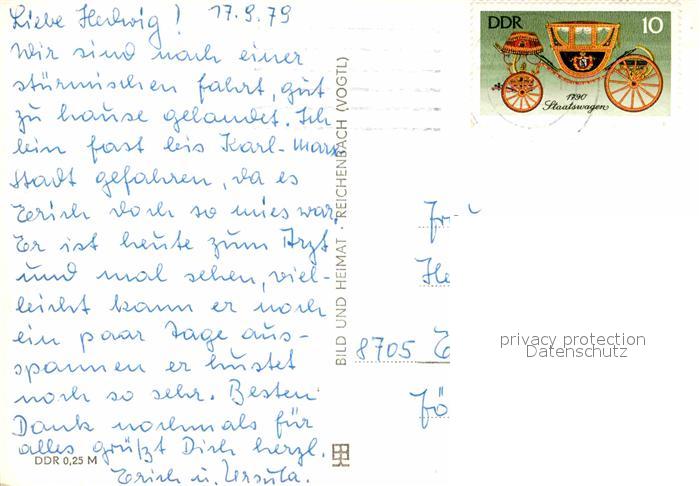 Liebe Hedwig! 17.9.79
Wir sind nach einer
stürmischen Fahrt, gut
zu hause gelandet. Ich
bin fast bis Karl-Marx
Stadt gefahren, da es
Erich doch so mies war.
Er ist heute zum Arzt
und mal sehen, viel-
leicht kann er noch
ein paar Tage aus-
spannen er hustet
noch so sehr. Besten
Dank nochmals für
alles grüßt Dich herzl.
Erich u. Ursula.
DDR 0,25 M
BILD UND HEIMAT · REICHENBACH (VOGTL)
DDR 10
1790
Staatswagen
8705
privacy protection
Datenschutz